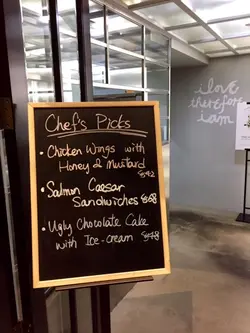 Chef's Picks
• Chicken Wings with
Honey & Mustard
• Salmon Caesar
Sandwiches
• Ugly Chocolate Cake
with Ice-cream
i love
therefore
i am